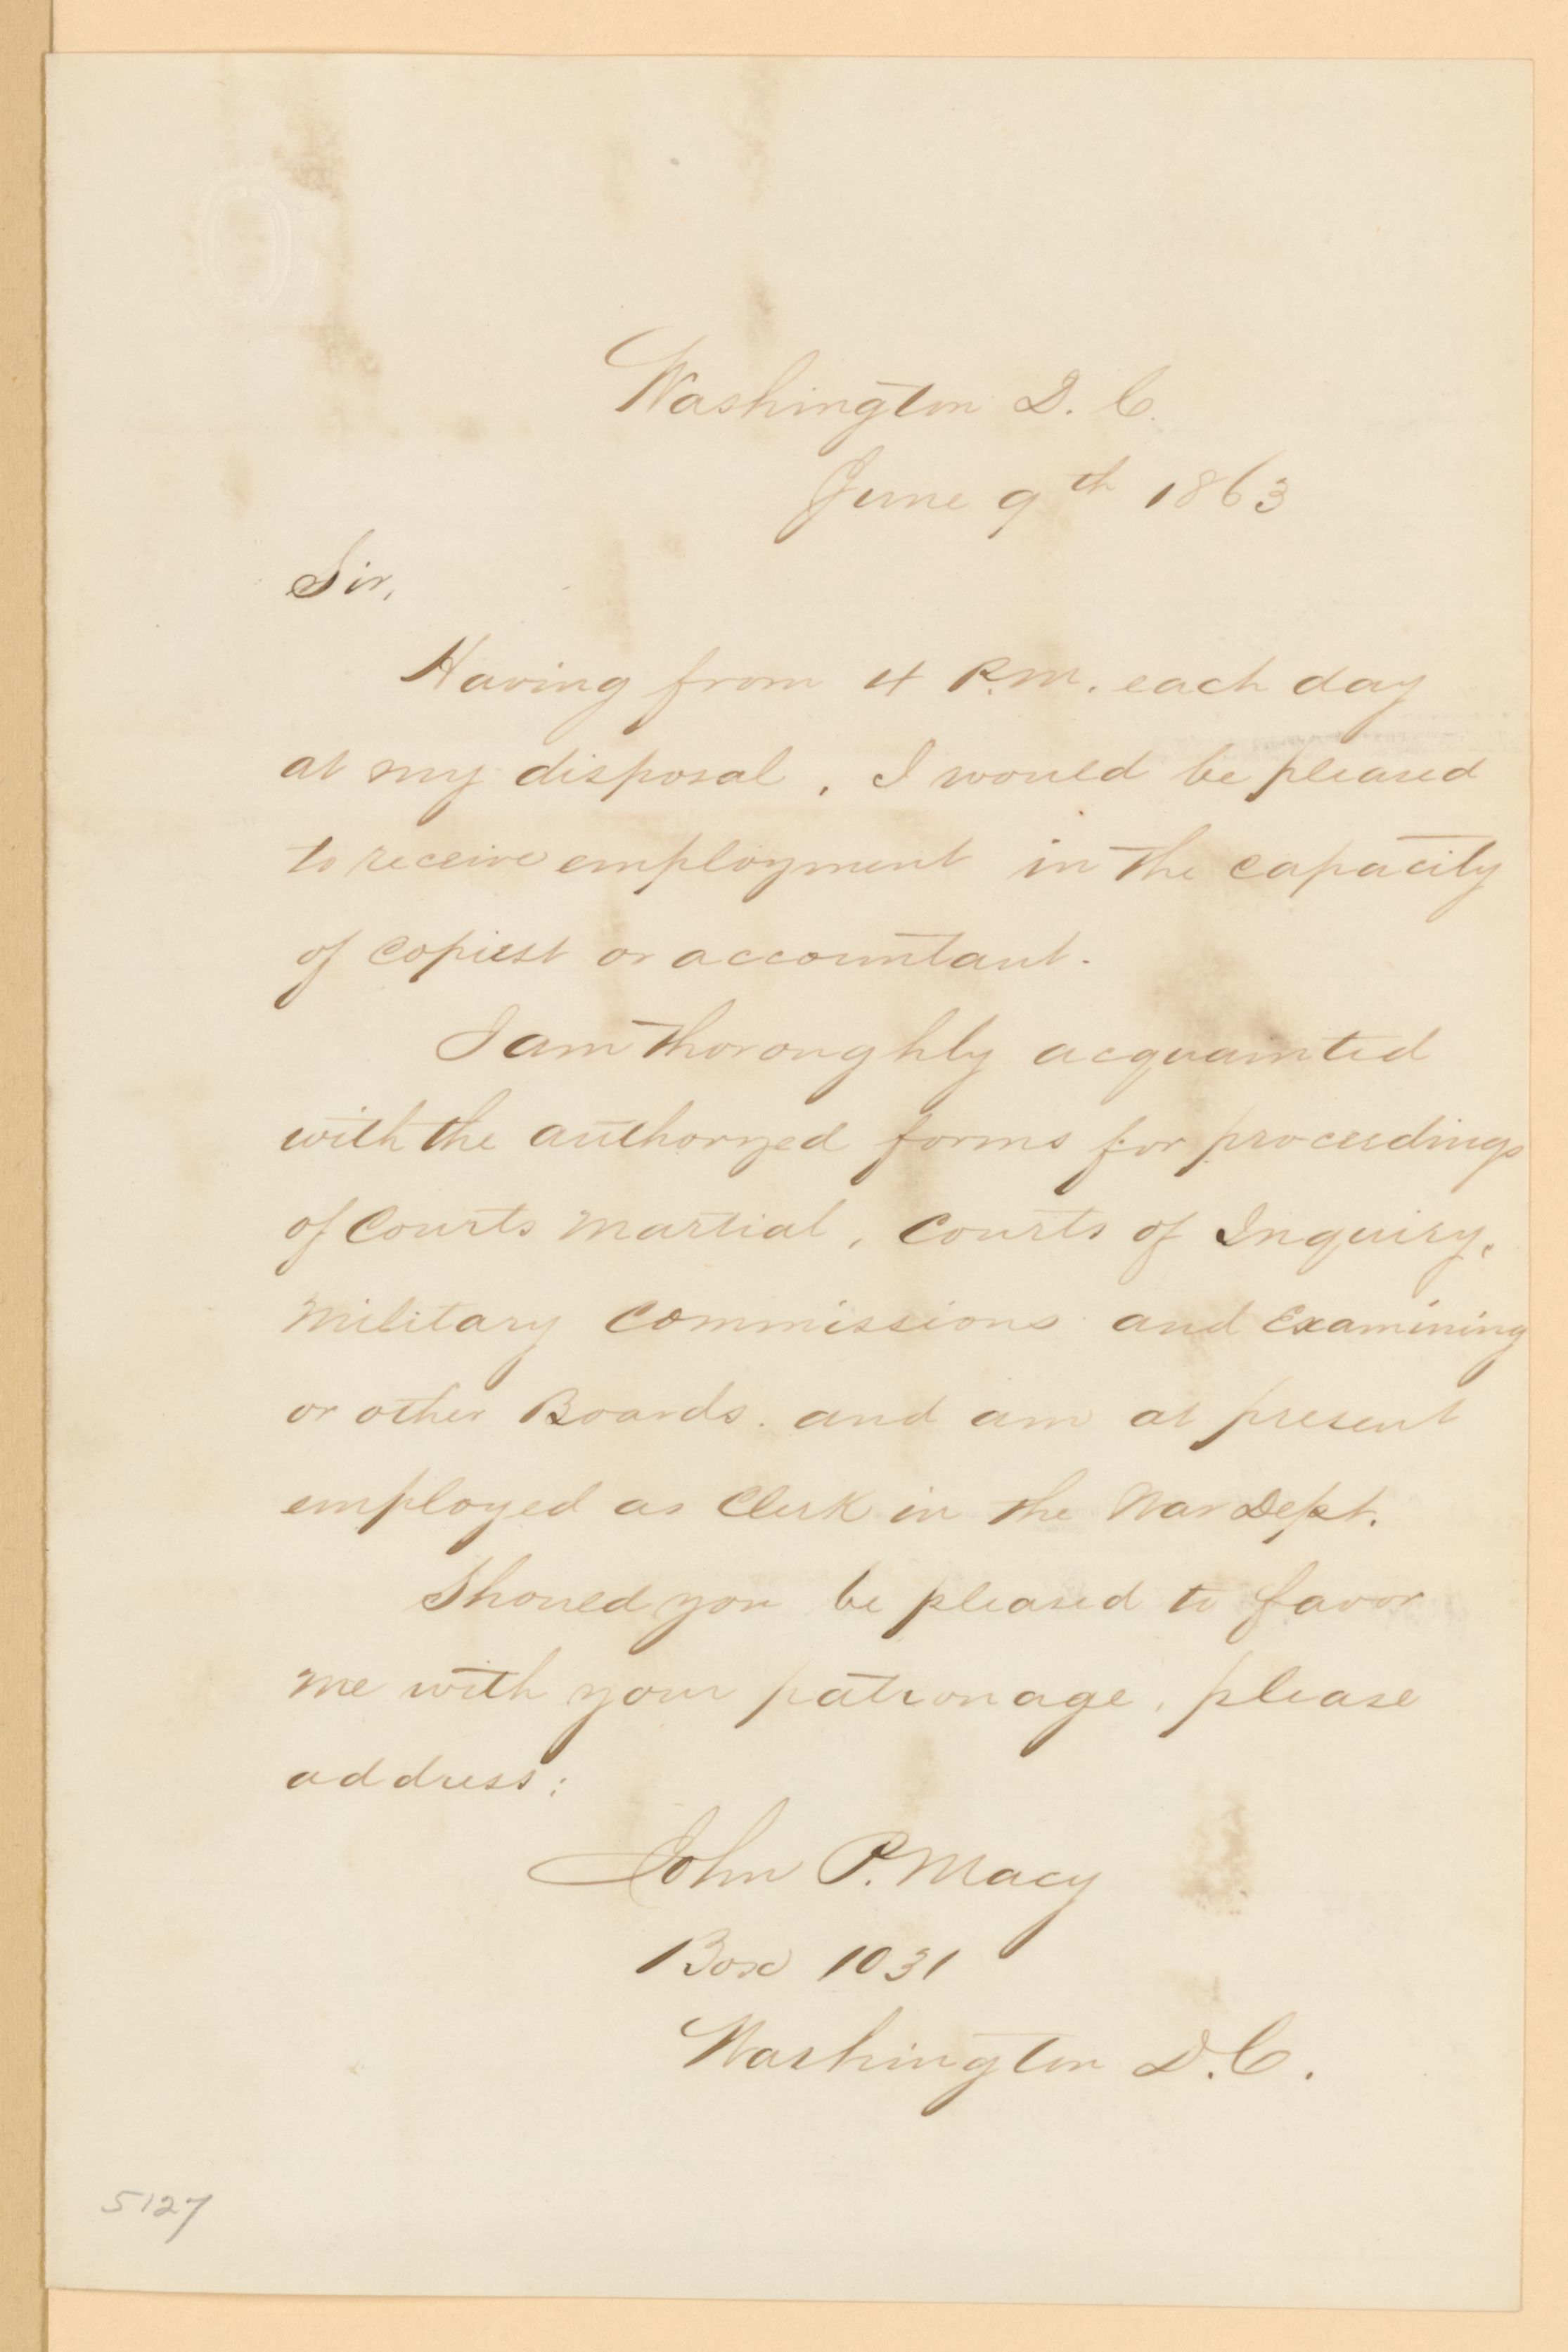 Washington D. C.
June 9th 1863
Sir,
Having from 4 P.M. each day
at my disposal, I would be pleased
to receive employment in the capacity
of Copiest or accountant.
I am thoroughly acquainted
with the authorized forms for proceedings
of Courts Martial, Courts of Inquiry,
Military Commissions and Examining
or other Boards. and am at present
employed as Clerk in the War Dept.
Should you be pleased to favor
me with your patronage, please
address:
John P. Macy
Box 1031
Washington D.C.
5127